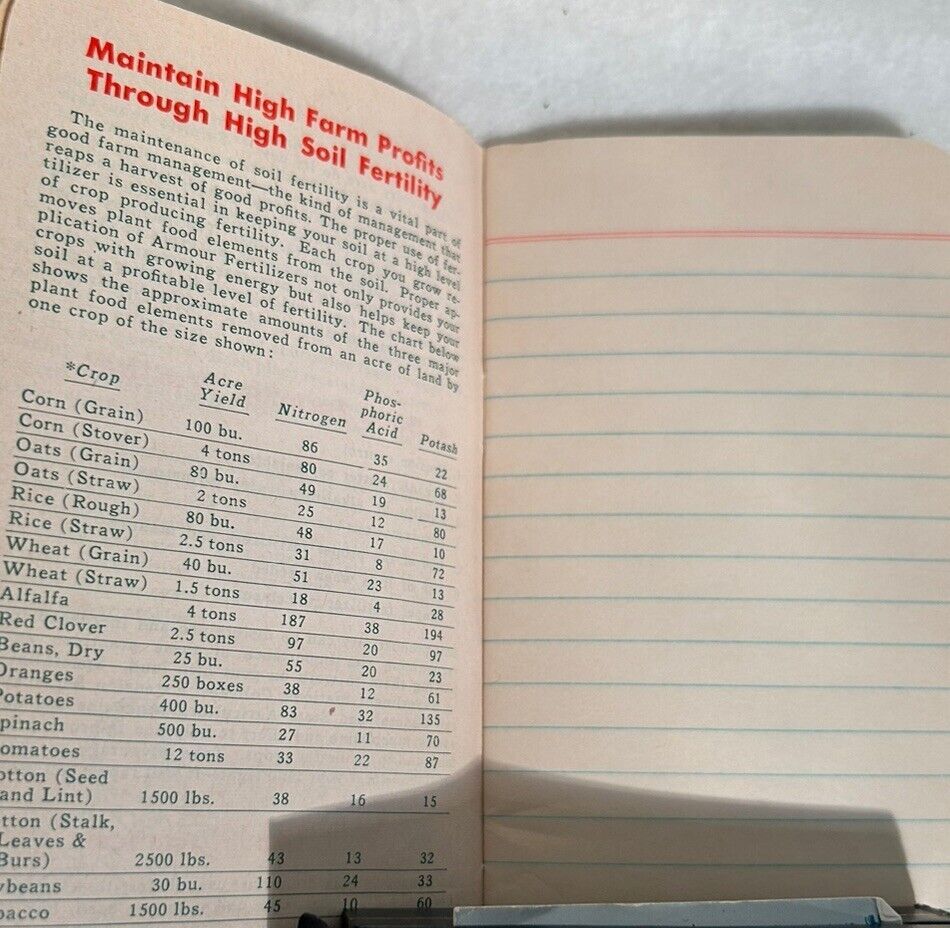 Maintain High Farm Profits
Through High Soil Fertility
The maintenance of soil fertility is a vital part of
good farm management—the kind of management that
reaps a harvest of good profits. The proper use of fer-
tilizer is essential in keeping your soil at a high level
of crop producing fertility. Each crop you grow re-
moves plant food elements from the soil. Proper ap-
plication of Armour Fertilizers not only provides your
crops with growing energy but also helps keep your
soil at a profitable level of fertility. The chart below
shows the approximate amounts of the three major
plant food elements removed from an acre of land by
one crop of the size shown:
*Crop Acre Yield Nitrogen Phos-phoric Acid Potash
Corn (Grain) 100 bu. 86 35 22
Corn (Stover) 4 tons 80 24 68
Oats (Grain) 80 bu. 49 19 13
Oats (Straw) 2 tons 25 12 80
Rice (Rough) 80 bu. 48 17 10
Rice (Straw) 2.5 tons 31 8 72
Wheat (Grain) 40 bu. 51 23 13
Wheat (Straw) 1.5 tons 18 4 28
Alfalfa 4 tons 187 38 194
Red Clover 2.5 tons 97 20 97
Beans, Dry 25 bu. 55 20 23
Oranges 250 boxes 38 12 61
Potatoes 400 bu. 83 32 135
pinach 500 bu. 27 11 70
omatoes 12 tons 33 22 87
otton (Seed
and Lint) 1500 lbs. 38 16 15
tton (Stalk,
Leaves &
Burs) 2500 lbs. 43 13 32
ybeans 30 bu. 110 24 33
bacco 1500 lbs. 45 10 60